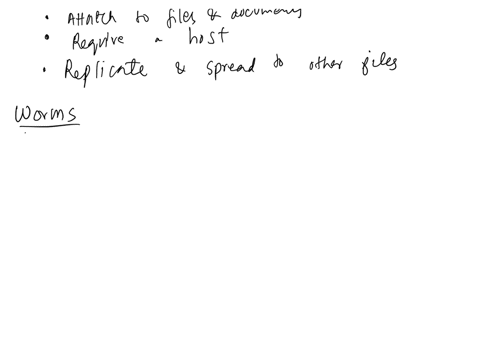 • Attatch to files & documents
• Require a host
• Replicate & spread to other files
Worms